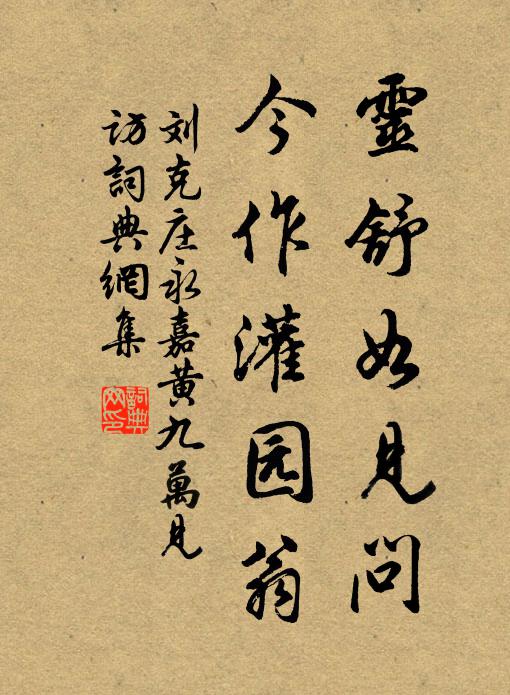 靈舒如見問
今作灌园翁
刘克庄永嘉黄九萬見
访詞典網集
詞典网印